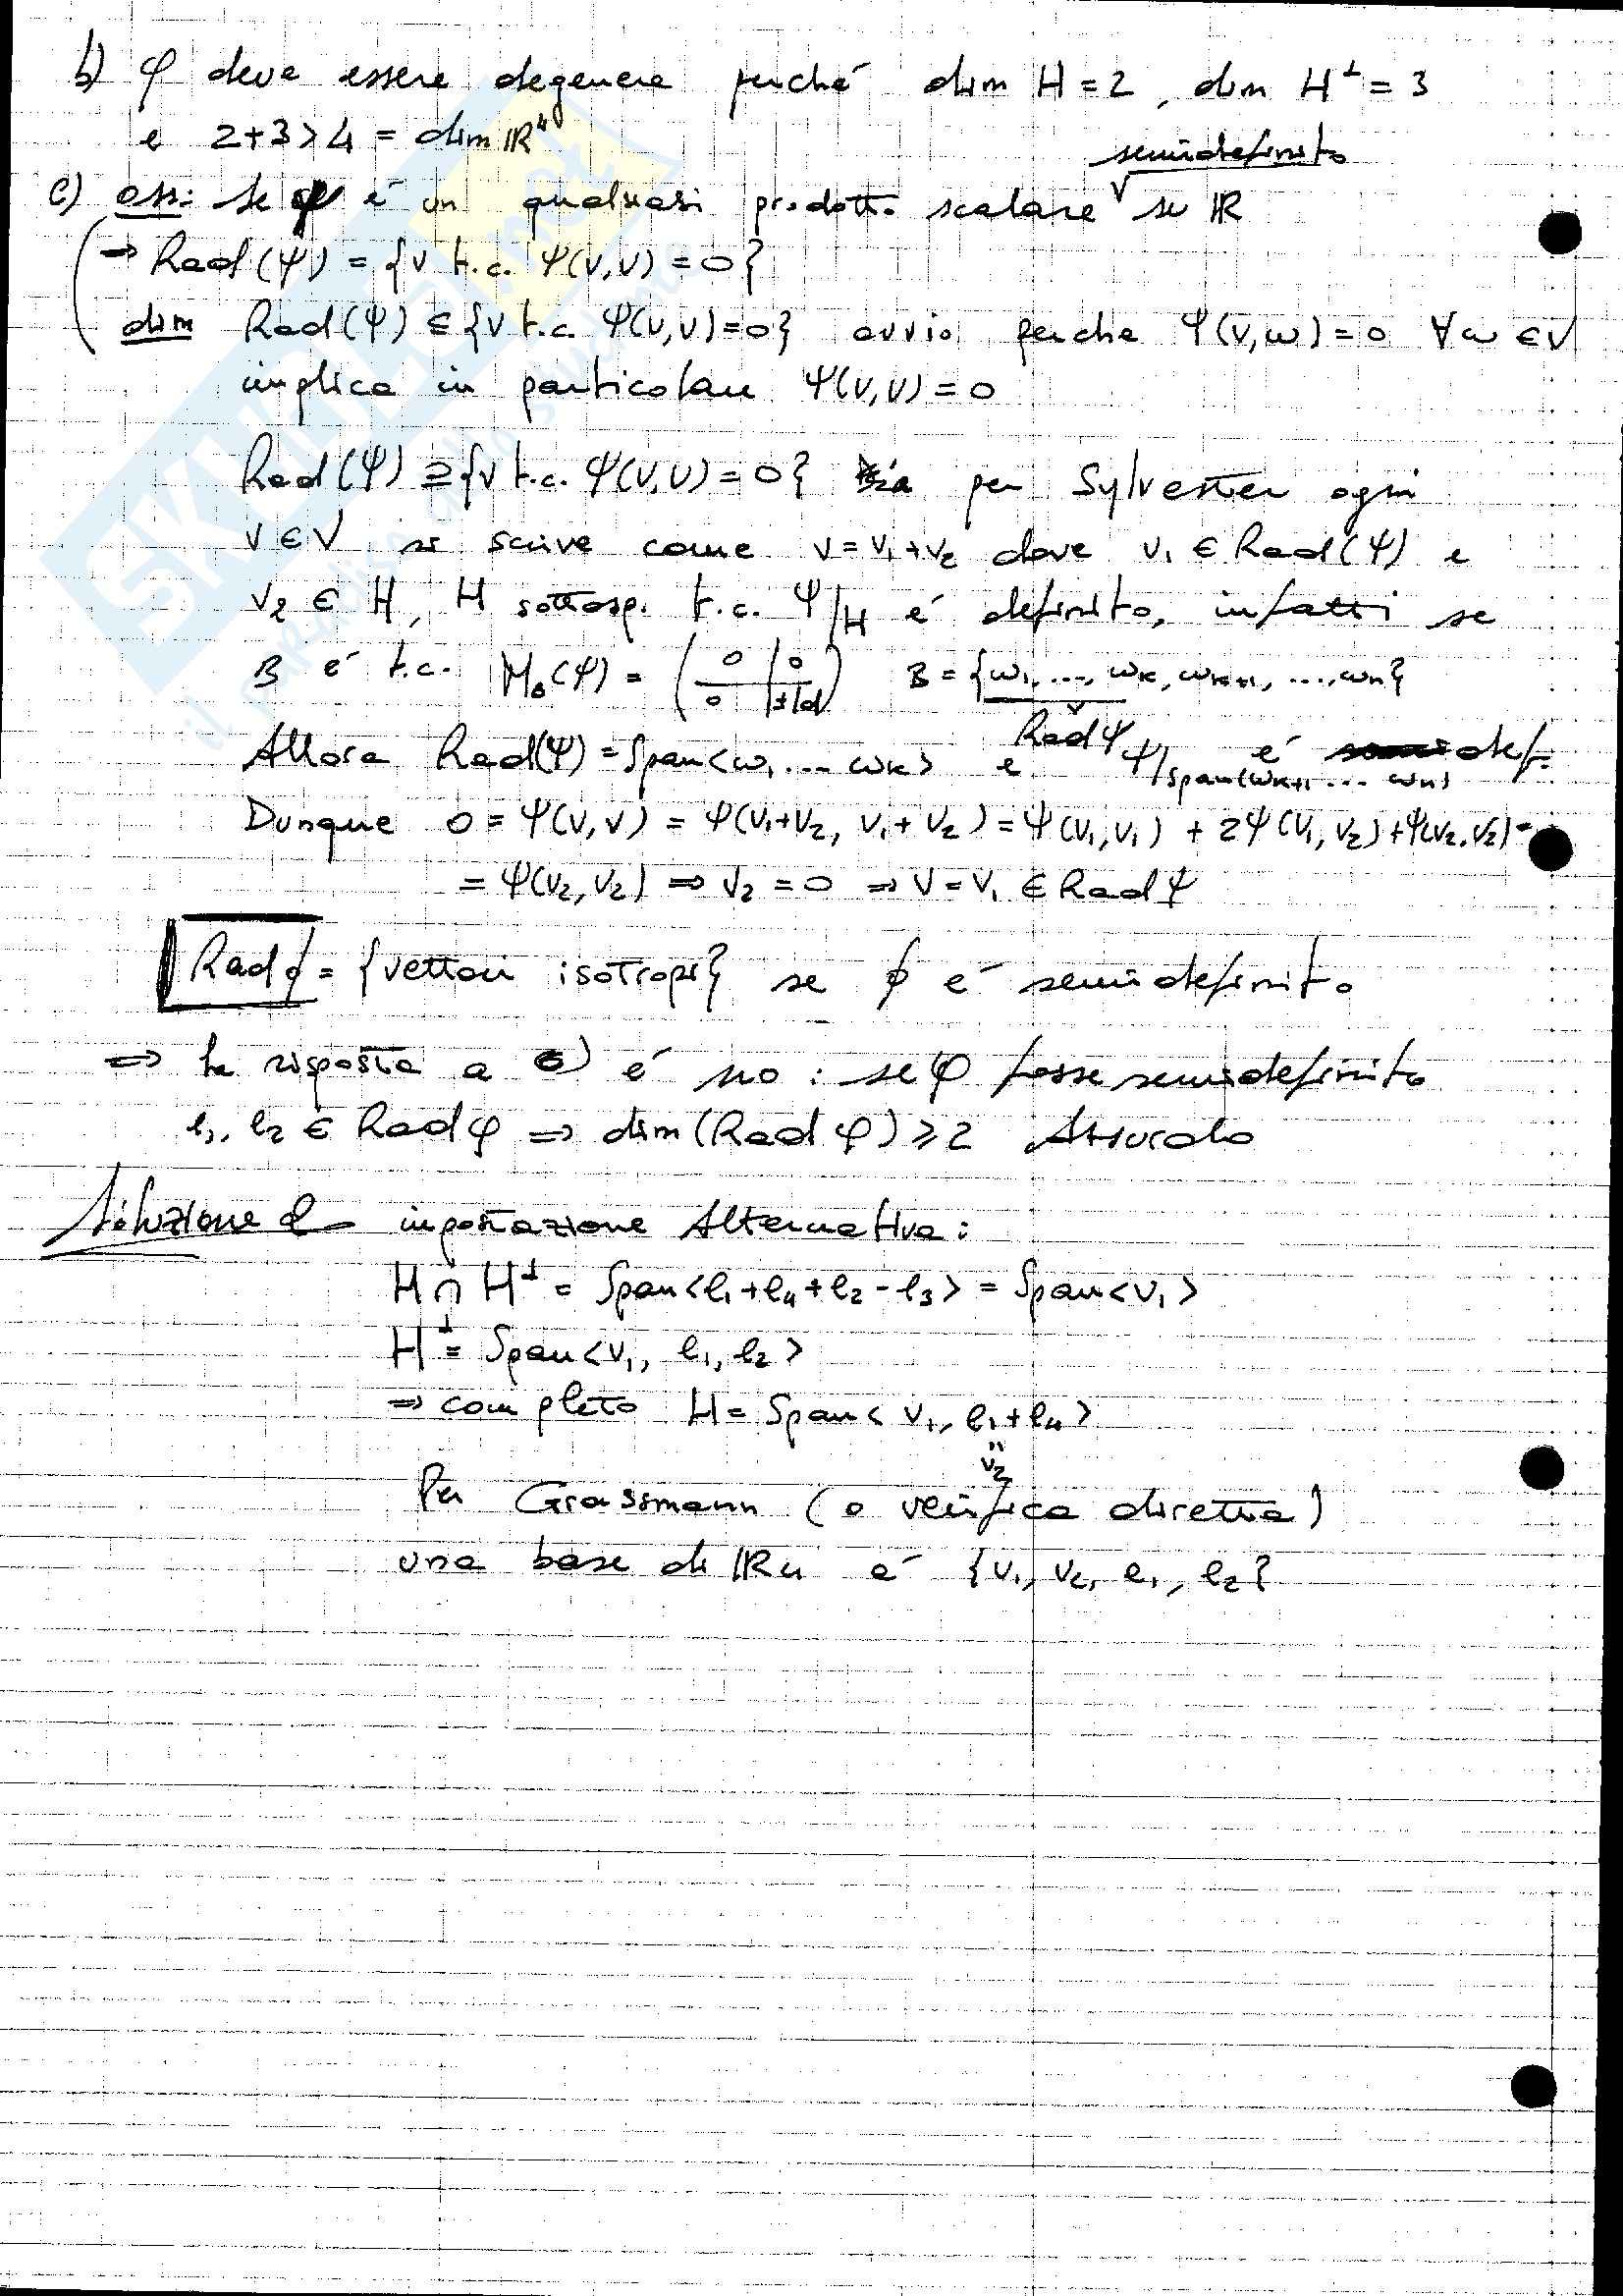 b) φ deve essere degenere perché dim H = 2, dim H^⊥ = 3
e 2+3 > 4 = dim ℝ^4
semidefinito
c) oss: se ψ è un qualsiasi prodotto scalare ∨ su ℝ
⇒ Rad(ψ) = {v t.c. ψ(v,v) = 0}
dim Rad(ψ) ⊆ {v t.c. ψ(v,v)=0} ovvio perche ψ(v,w)=0 ∀w ∈V
implica in particolare ψ(v,v) = 0
Rad(ψ) ⊇ {v t.c. ψ(v,v) = 0} per Sylvester ogni
v ∈ V si scrive come v = v1 + v2 dove v1 ∈ Rad(ψ) e
v2 ∈ H, H sottosp. t.c. ψ|H è definito, infatti se
B è t.c. M_B(ψ) = (0 | 0 / 0 | ±Id) B = {w1, ..., wk, wk+1, ..., wn}
Rad ψ
Allora Rad(ψ) = Span<w1 ... wk> e ψ|Span<wk+1 ... wn> è def.
Dunque 0 = ψ(v,v) = ψ(v1+v2, v1+v2) = ψ(v1,v1) + 2ψ(v1,v2) + ψ(v2,v2) =
= ψ(v2,v2) ⇒ v2 = 0 ⇒ v = v1 ∈ Rad ψ
Rad ϕ = {vettori isotropi} se ϕ è semidefinito
⇒ La risposta a c) è no : se φ fosse semidefinito
e1, e2 ∈ Rad φ ⇒ dim(Rad φ) ≥ 2 Assurdo
Soluzione 2 - impostazione Alternativa:
H ∩ H^⊥ = Span<e1+e4+e2-e3> = Span<v1>
H^⊥ = Span<v1, e1, e2>
⇒ completo H = Span<v1, e1+e4>
"
v2
Per Grassmann (o verifica diretta)
una base di ℝ4 è {v1, v2, e1, e2}